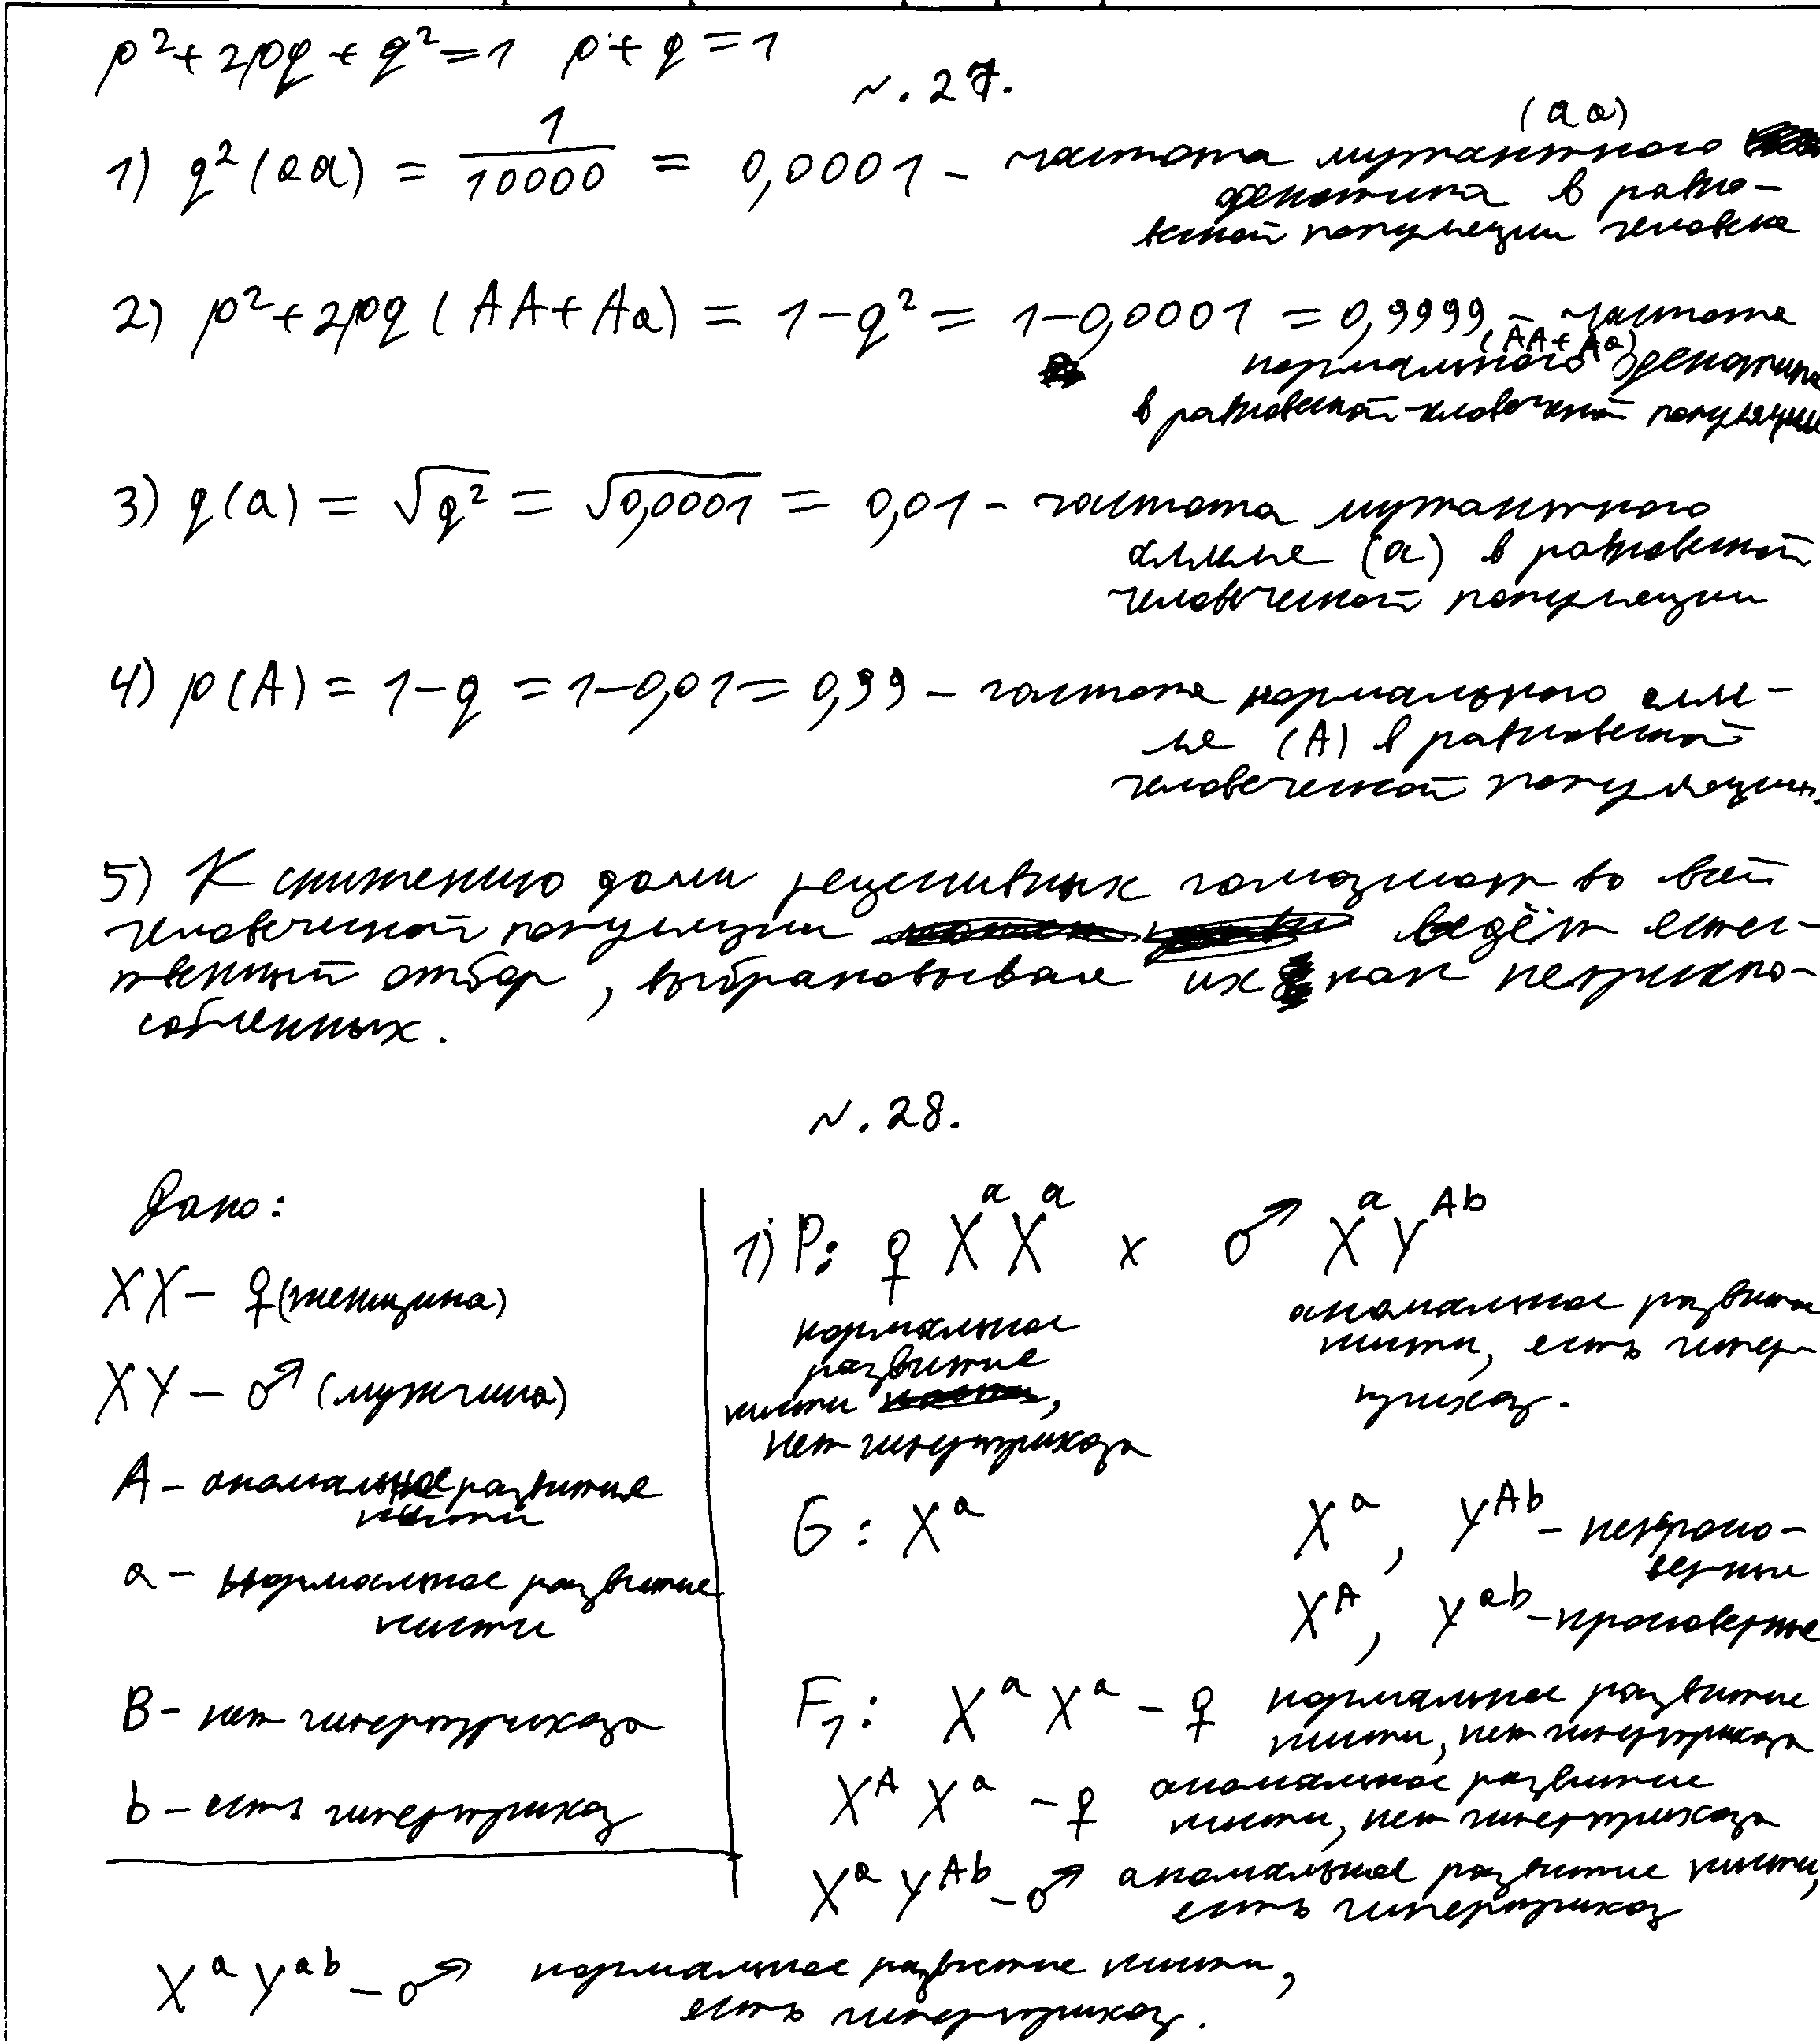 p² + 2pq + q² = 1   p + q = 1
№. 27.
1) q² (aa) = 1/10000 = 0,0001 – частота мутантного (aa)
фенотипа в равно-
весной популяции человека
2) p² + 2pq (AA + Aa) = 1 – q² = 1 – 0,0001 = 0,9999 – частота
нормального (AA + Aa) фенотипа
в равновесной человечной популяции
3) q (a) = √q² = √0,0001 = 0,01 – частота мутантного
аллеле (a) в равновесной
человеческой популяции
4) p (A) = 1 – q = 1 – 0,01 = 0,99 – частота нормального алле-
ле (A) в равновесной
человеческой популяции.
5) К снижению доли рецессивных гомозигот во всей
человеческой популяции ведёт естес-
твенный отбор, выбраковывая их как неприспо-
собленных.
№. 28.
Дано:
XX – ♀ (женщина)
XY – ♂ (мужчина)
A – аномальное развитие
кисти
a – нормальное развитие
кисти
B – нет гипертрихоза
b – есть гипертрихоз
1) P: ♀ XᵃXᵃ x ♂ XᵃYᴬᵇ
нормальное
развитие
кисти,
нет гипертрихоза
аномальное развитие
кисти, есть гипер-
трихоз.
G: Xᵃ   Xᵃ, Yᴬᵇ – некроссо-
верные
Xᴬ, Yᵃᵇ – кроссоверные
F₁: XᵃXᵃ – ♀ нормальное развитие
кисти, нет гипертрихоза
XᴬXᵃ – ♀ аномальное развитие
кисти, нет гипертрихоза
XᵃYᴬᵇ – ♂ аномальное развитие кисти,
есть гипертрихоз
XᵃYᵃᵇ – ♂ нормальное развитие кисти,
есть гипертрихоз.